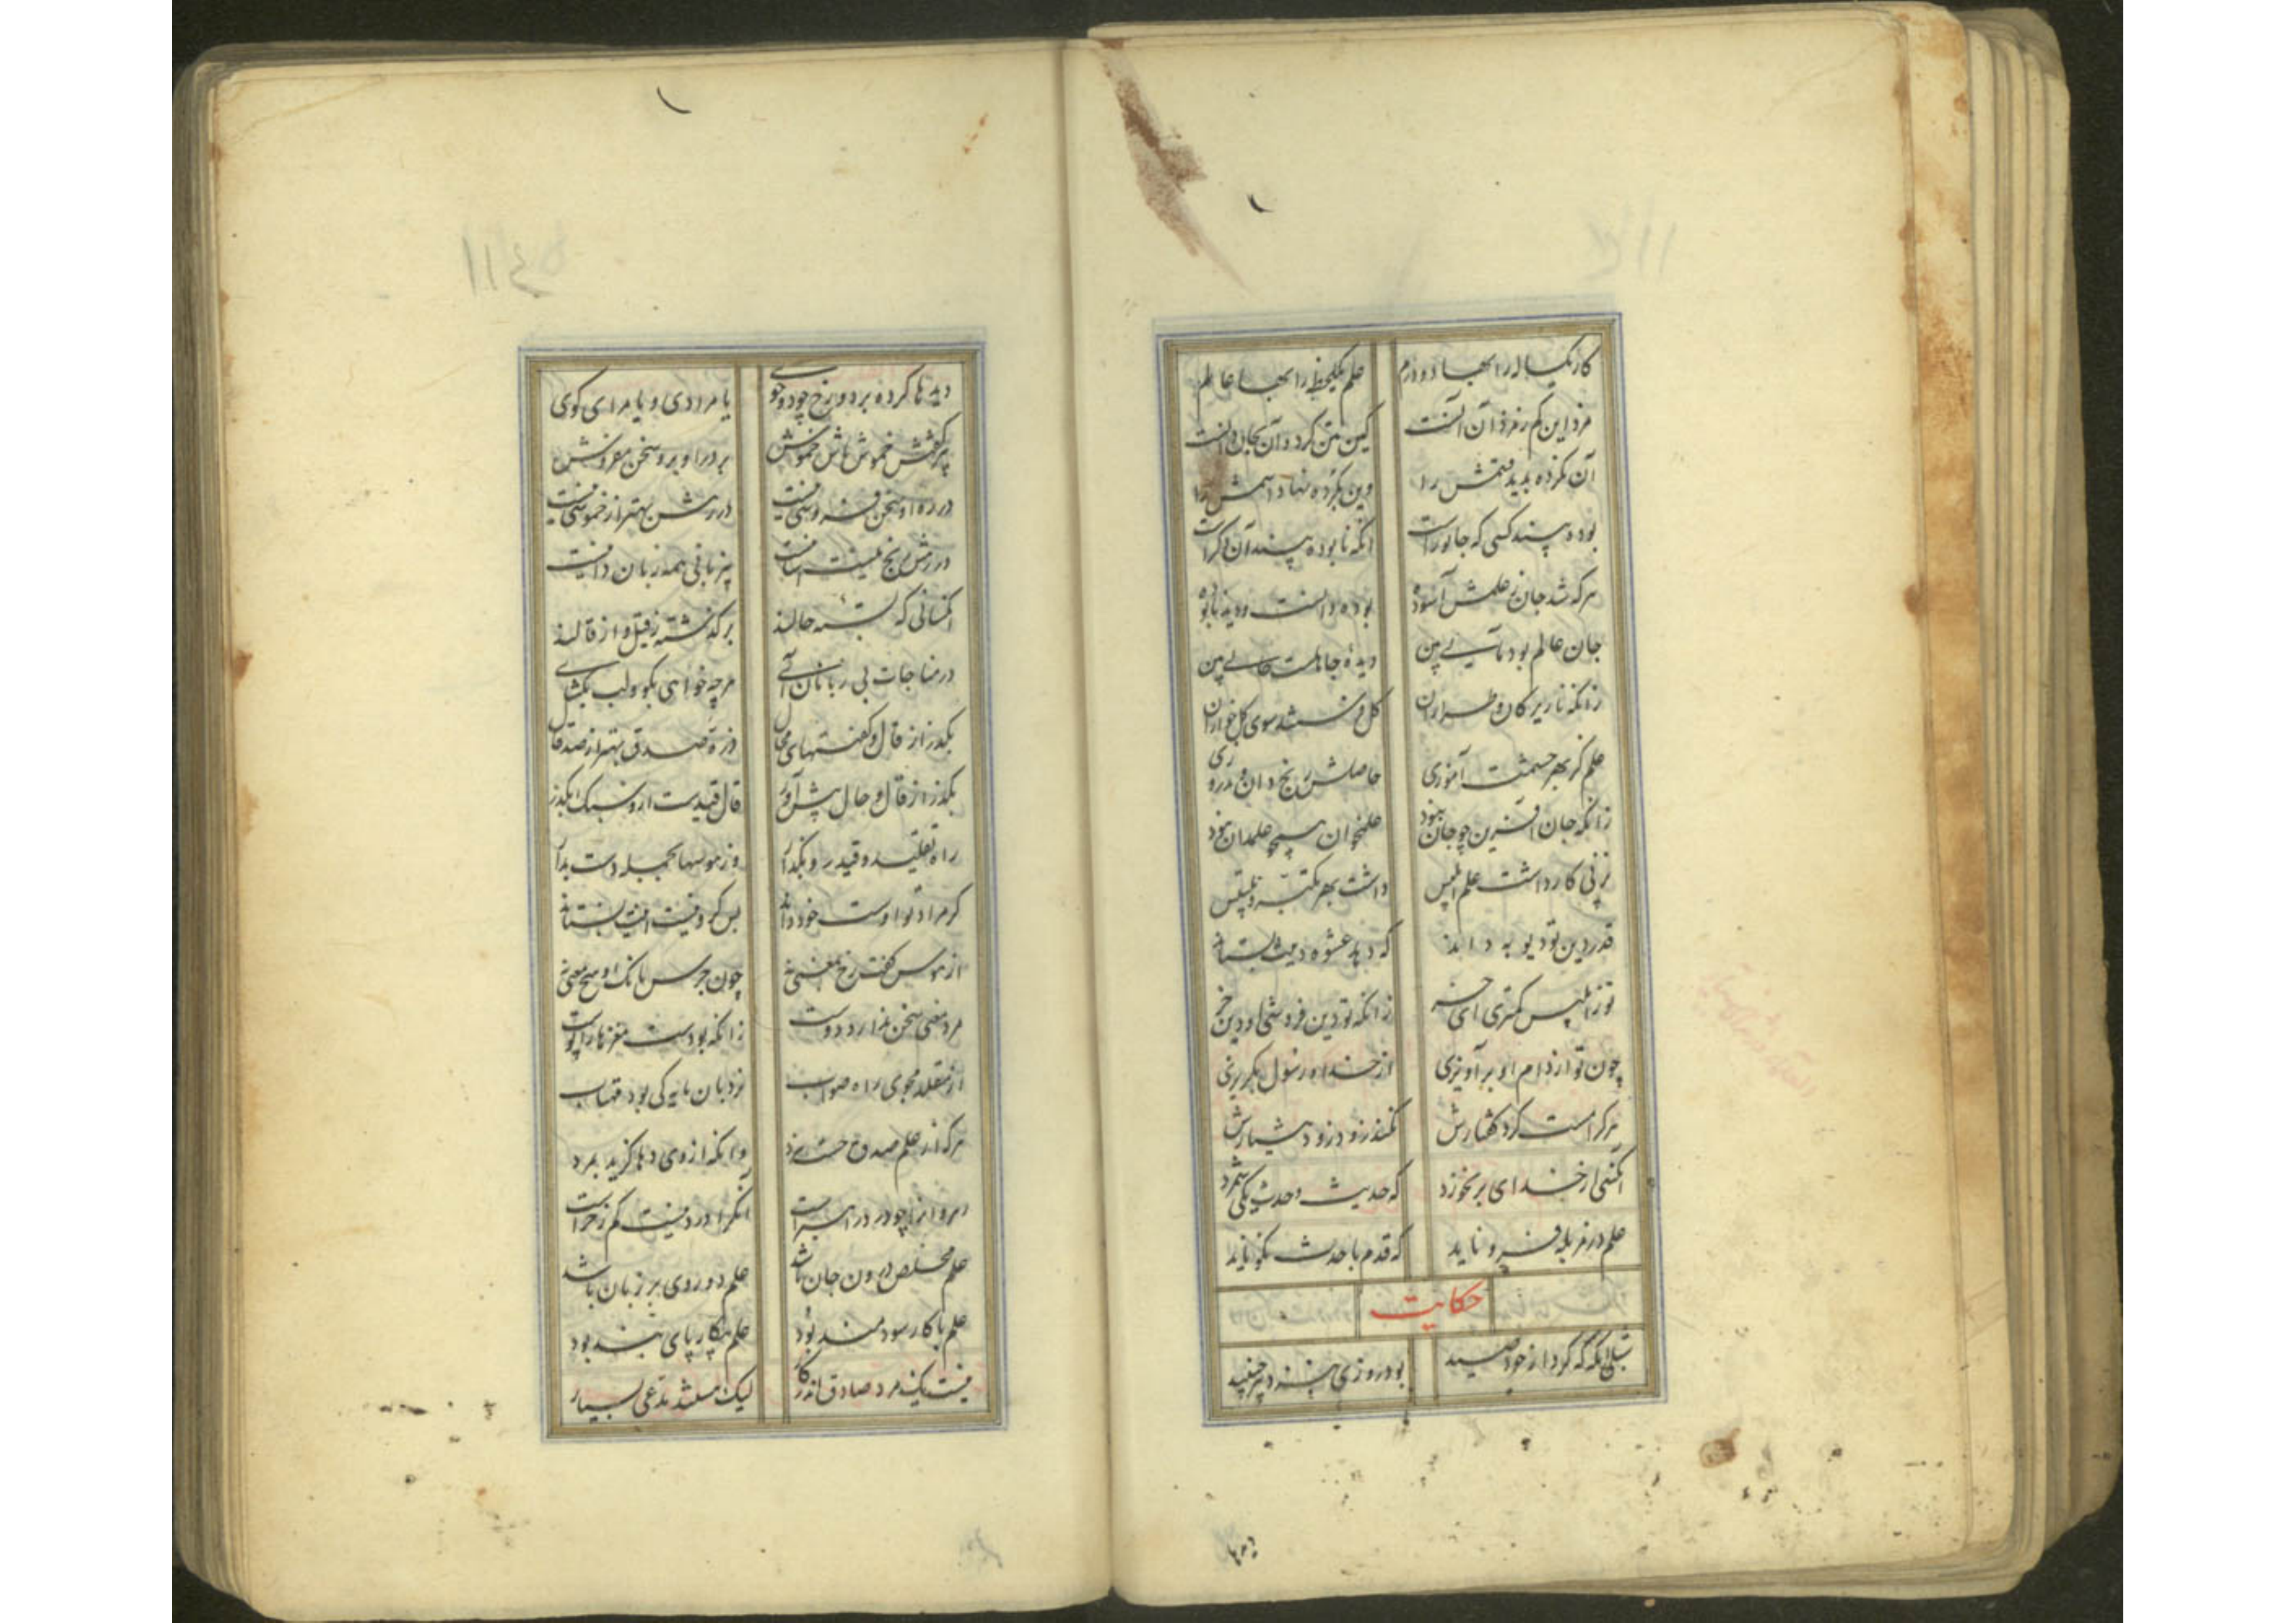 کار یکساله را بها دو درم علم یک لحظه را بها عالم
مزد این کم ز مزد آن آنست کین بتن کرد و آن بجان دانست
آن نکرده بدید قسمتش را وین بکرده نهاد اسمش را
بوده بیند کسی که جانور است آنکه نابوده بیند آن دگر است
هر که شد جان ز علمش آسوده بوده دانست و دید نابوده
جان عالم بود پی بین دیدهٔ جاهلست حالی بین
زانکه ناریرکان و طراران گل فرستند سوی گل خواران
علم کز بهر حشمت آموزی حاصلش رنج دان و بد روزی
زانکه جان آفرین چو جان نبود علم خوان همچو علم دان نبود
نز پی کار داشت علم ابلیس داشت بهر تلبیس
قدر دین تو دیو به داند که دهد عشوه دینت بستاند
تو ز ابلیس کمتری ای خر زانکه تو دین فروشی او دین خر
چون تو از دام او برآویزی از خدا و رسول بگریزی
هر کرا مست کرد گفتارش نکند زود زود هشیارش
آنکسی از خدای برنخورد که حدیث و حدث یکی شمرد
علم در مزبله فرو ناید که قدم با حدث نکو ناید
حکایت
شبلی آنگه که کرد از خود صید بود روزی بنزد پیر جنید
دیده ها کرده بر دو رخ چو دو جوی یا مرادی و یا مرادی گوی
پیر گفتش خموش باش خموش بر در او برو سخن مفروش
در ره او سخن فروشی نیست در رهش بهتر از خموشی نیست
در رهش رنج نیست آسانیست بی زبانی همه زبان دانیست
آنکسانی که بسته حالند برگذشته ز قیل و از قالند
در مناجات بی زبانان آی هر چه خواهی بگو و لب بگشای
بگذر از قال و گفتهای محال ذره صدق بهتر از صد قال
بگذر از قال و حال پیش آور قال قیدست ازو سبک بگذر
راه تقلید و قید رو بگذار وز هوسها بجمله دست بدار
گر مراد تو اوست خود داند بس کرد نیست این بستاند
از هوس گفت رخ بمعنی نه چون جرس بانگ او هیچ معنی نه
مرد معنی سخن ندارد دوست زانکه بودست مغزها را پوست
از مقلد مجوی راه صواب نردبان پایه کی بود مهتاب
هر که از علم صدق جست ببرد وانکه از وی دها گزید بمرد
مرو را چو درد راهبر است آنکرا درد نیست کم ز خر است
علم مخلص درون جان باشد علم دو روی بر زبان باشد
علم با کار سودمند بود علم بیکار پای بند بود
نیست یک مرد صادق اندر کار لیک هستند مدعی بسیار